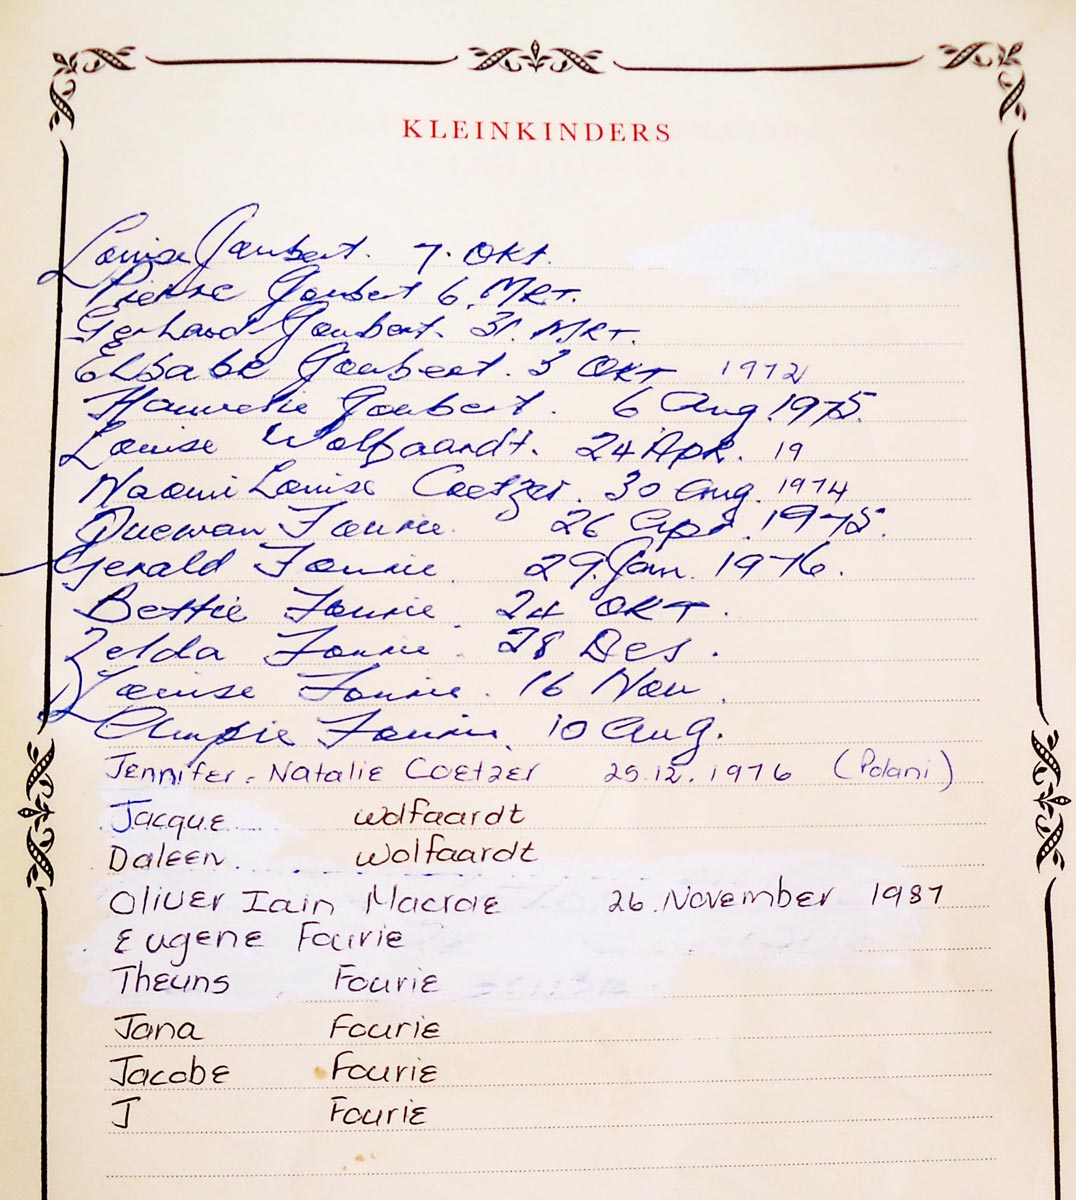 KLEINKINDERS
Louise Joubert. 7. OKt.
Pierre Joubert 6. MRT.
Gerhard Joubert. 31. MRT.
Elsabe Joubert. 3 OKT 1972
Joubert. 6 Aug. 1975.
Louise Wolfaardt. 24 Apr. 19
Naomi Louise Coetzer. 30 Aug. 1974
Quewan Fourie. 26 Apr. 1975.
Gerald Fourie. 29. Jan. 1976.
Bettie Fourie. 24 OKT.
Zelda Fourie. 28 Des.
Louise Fourie. 16 Nov.
Fourie. 10 Aug.
Jennifer-Natalie Coetzer 25.12.1976 (Polani)
Jacque Wolfaardt
Daleen Wolfaardt
Oliver Iain Macrae 26. November 1987
Eugene Fourie
Theuns Fourie
Jana Fourie
Jacobe Fourie
J Fourie